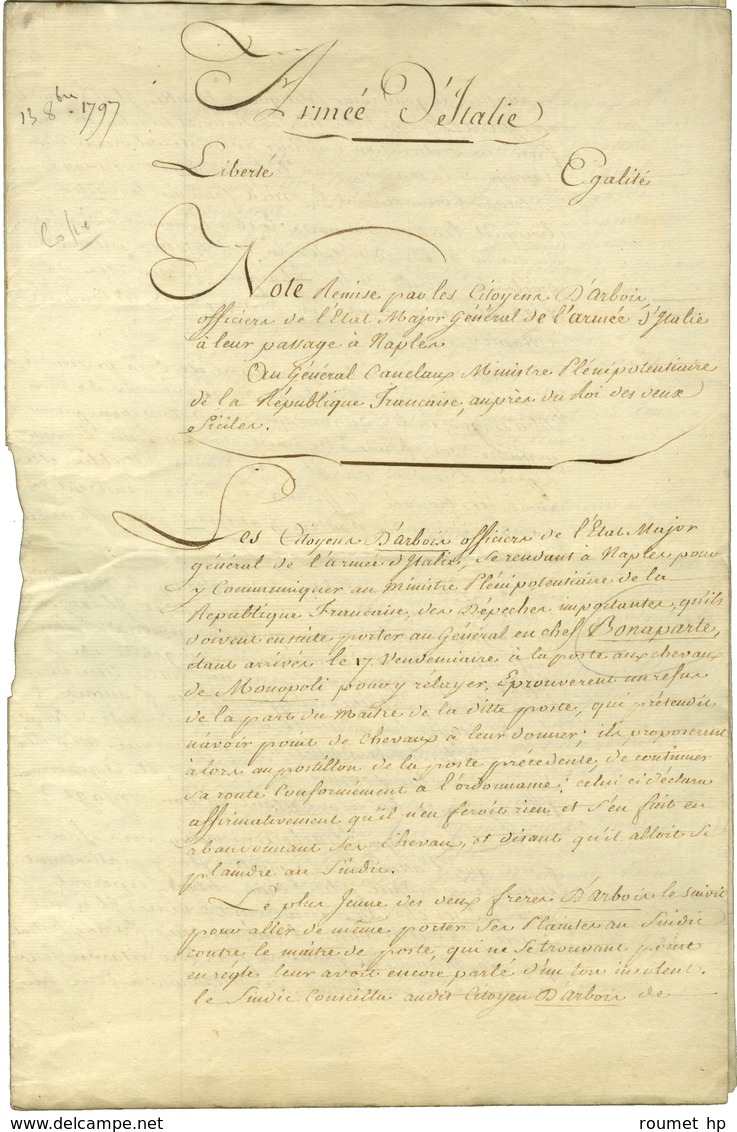 Armée D'Italie
13 8bre 1797
Liberté Egalité
Note Remise par les Citoyens D'Arbois
officiers de l'Etat Major Général de l'armée d'Italie
à leur passage à Naples
Au Général Canclaux Ministre Plénipotentiaire
de la République Francaise, auprès du Roi des deux
Siciles.
Les Citoyens D'arbois officiers de l'Etat Major
général de l'armée d'Italie, se rendant à Naples pour
y Communiquer au Ministre Plénipotentiaire de la
République Francaise, des Depeches importantes, qu'ils
doivent ensuite porter au Général en chef Bonaparte,
étant arrivés le 17 Vendemiaire à la poste aux chevaux
de Monopoli pour y relayer, Eprouverent un refus
de la part du Maitre de la ditte poste, qui prétendit
n'avoir point de Chevaux à leur donner; ils proposerent
àlors au postillon de la poste précédente, de continuer
sa route Conformément à l'ordonnance; celui ci déclara
affirmativement qu'il n'en feroit rien et s'en fuit en
abandonnant ses Chevaux, et disant qu'il alloit se
plaindre au Sindic.
Le plus Jeune des deux freres D'Arbois le suivit
pour aller de même porter ses Plaintes au Sindic
contre le maitre de poste, qui ne se trouvant point
en régle leur avoit encore parlé d'un ton insolent.
le Sindic Conseilla audit Citoyen D'Arbois de
roumet hp